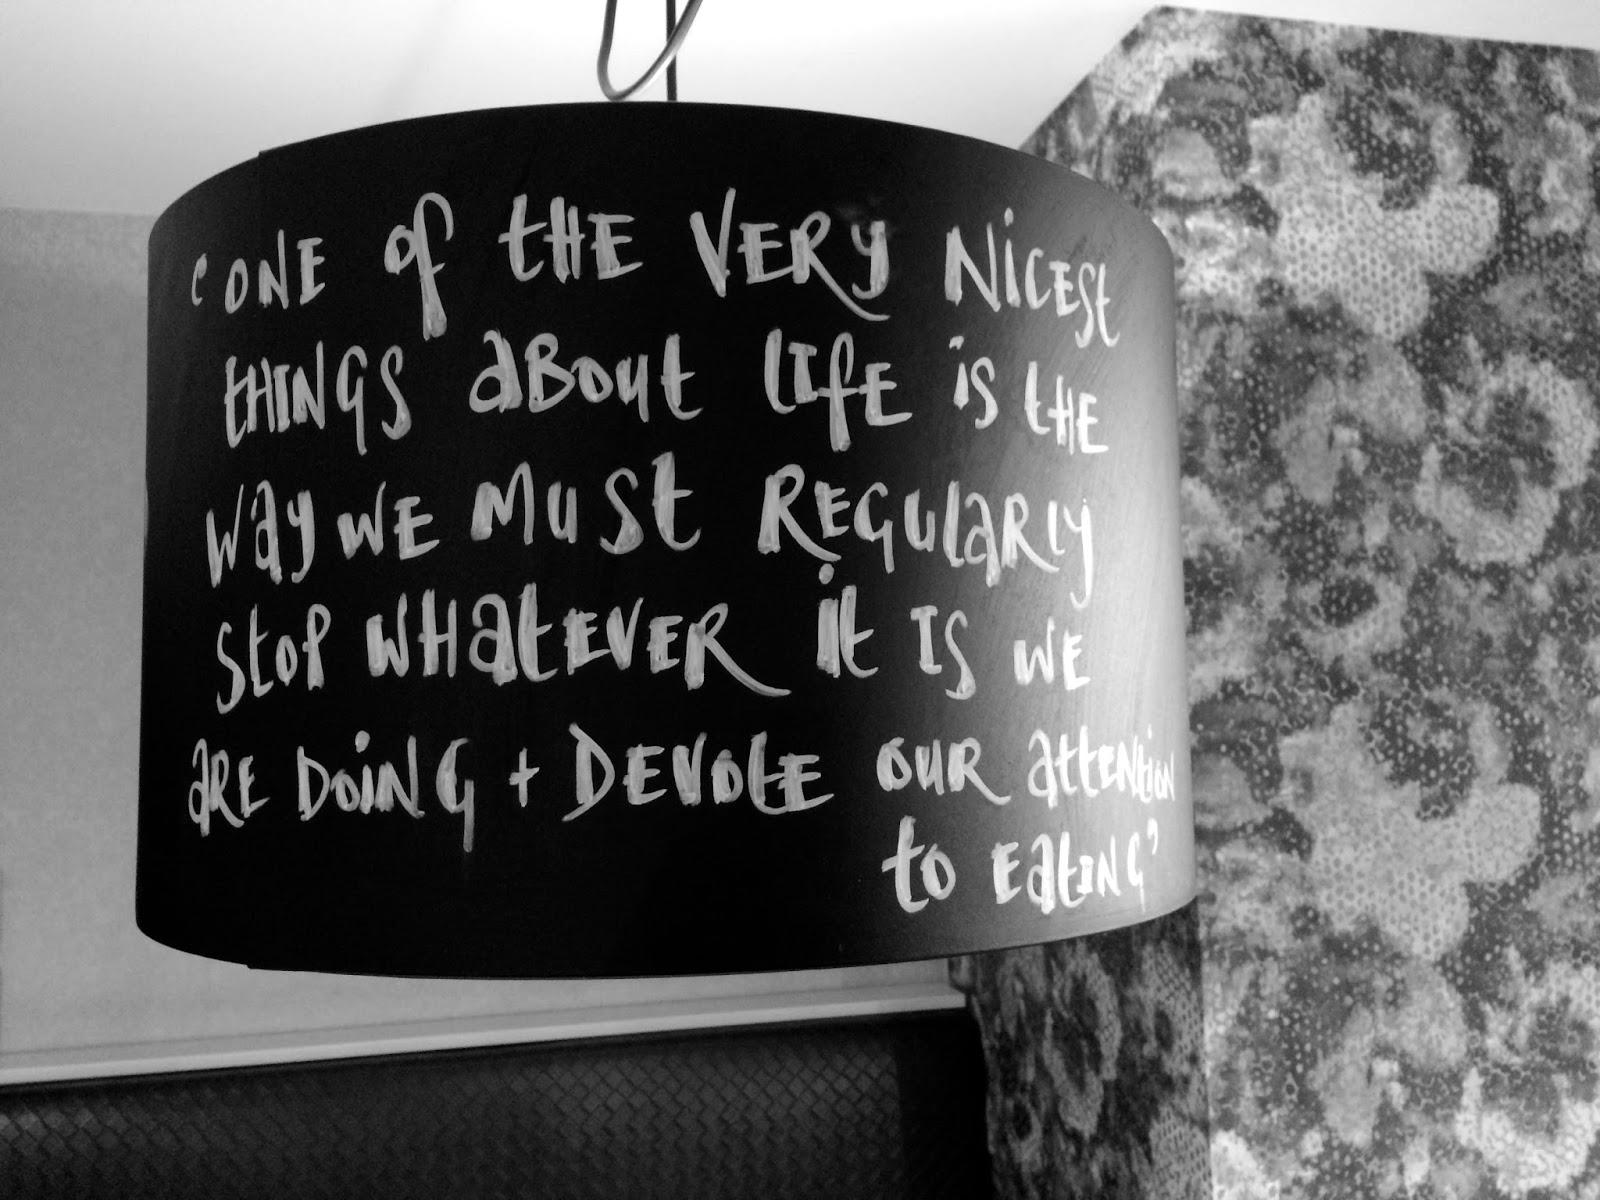 'ONE of tHE VERy NiCESt
tHINGS aBOut LIfE iS tHE
Way WE MuSt REGuLaRLy
StOP WHatEVER it IS WE
aRE DOiNG + DEVOtE OuR attENtiON
tO EatING'